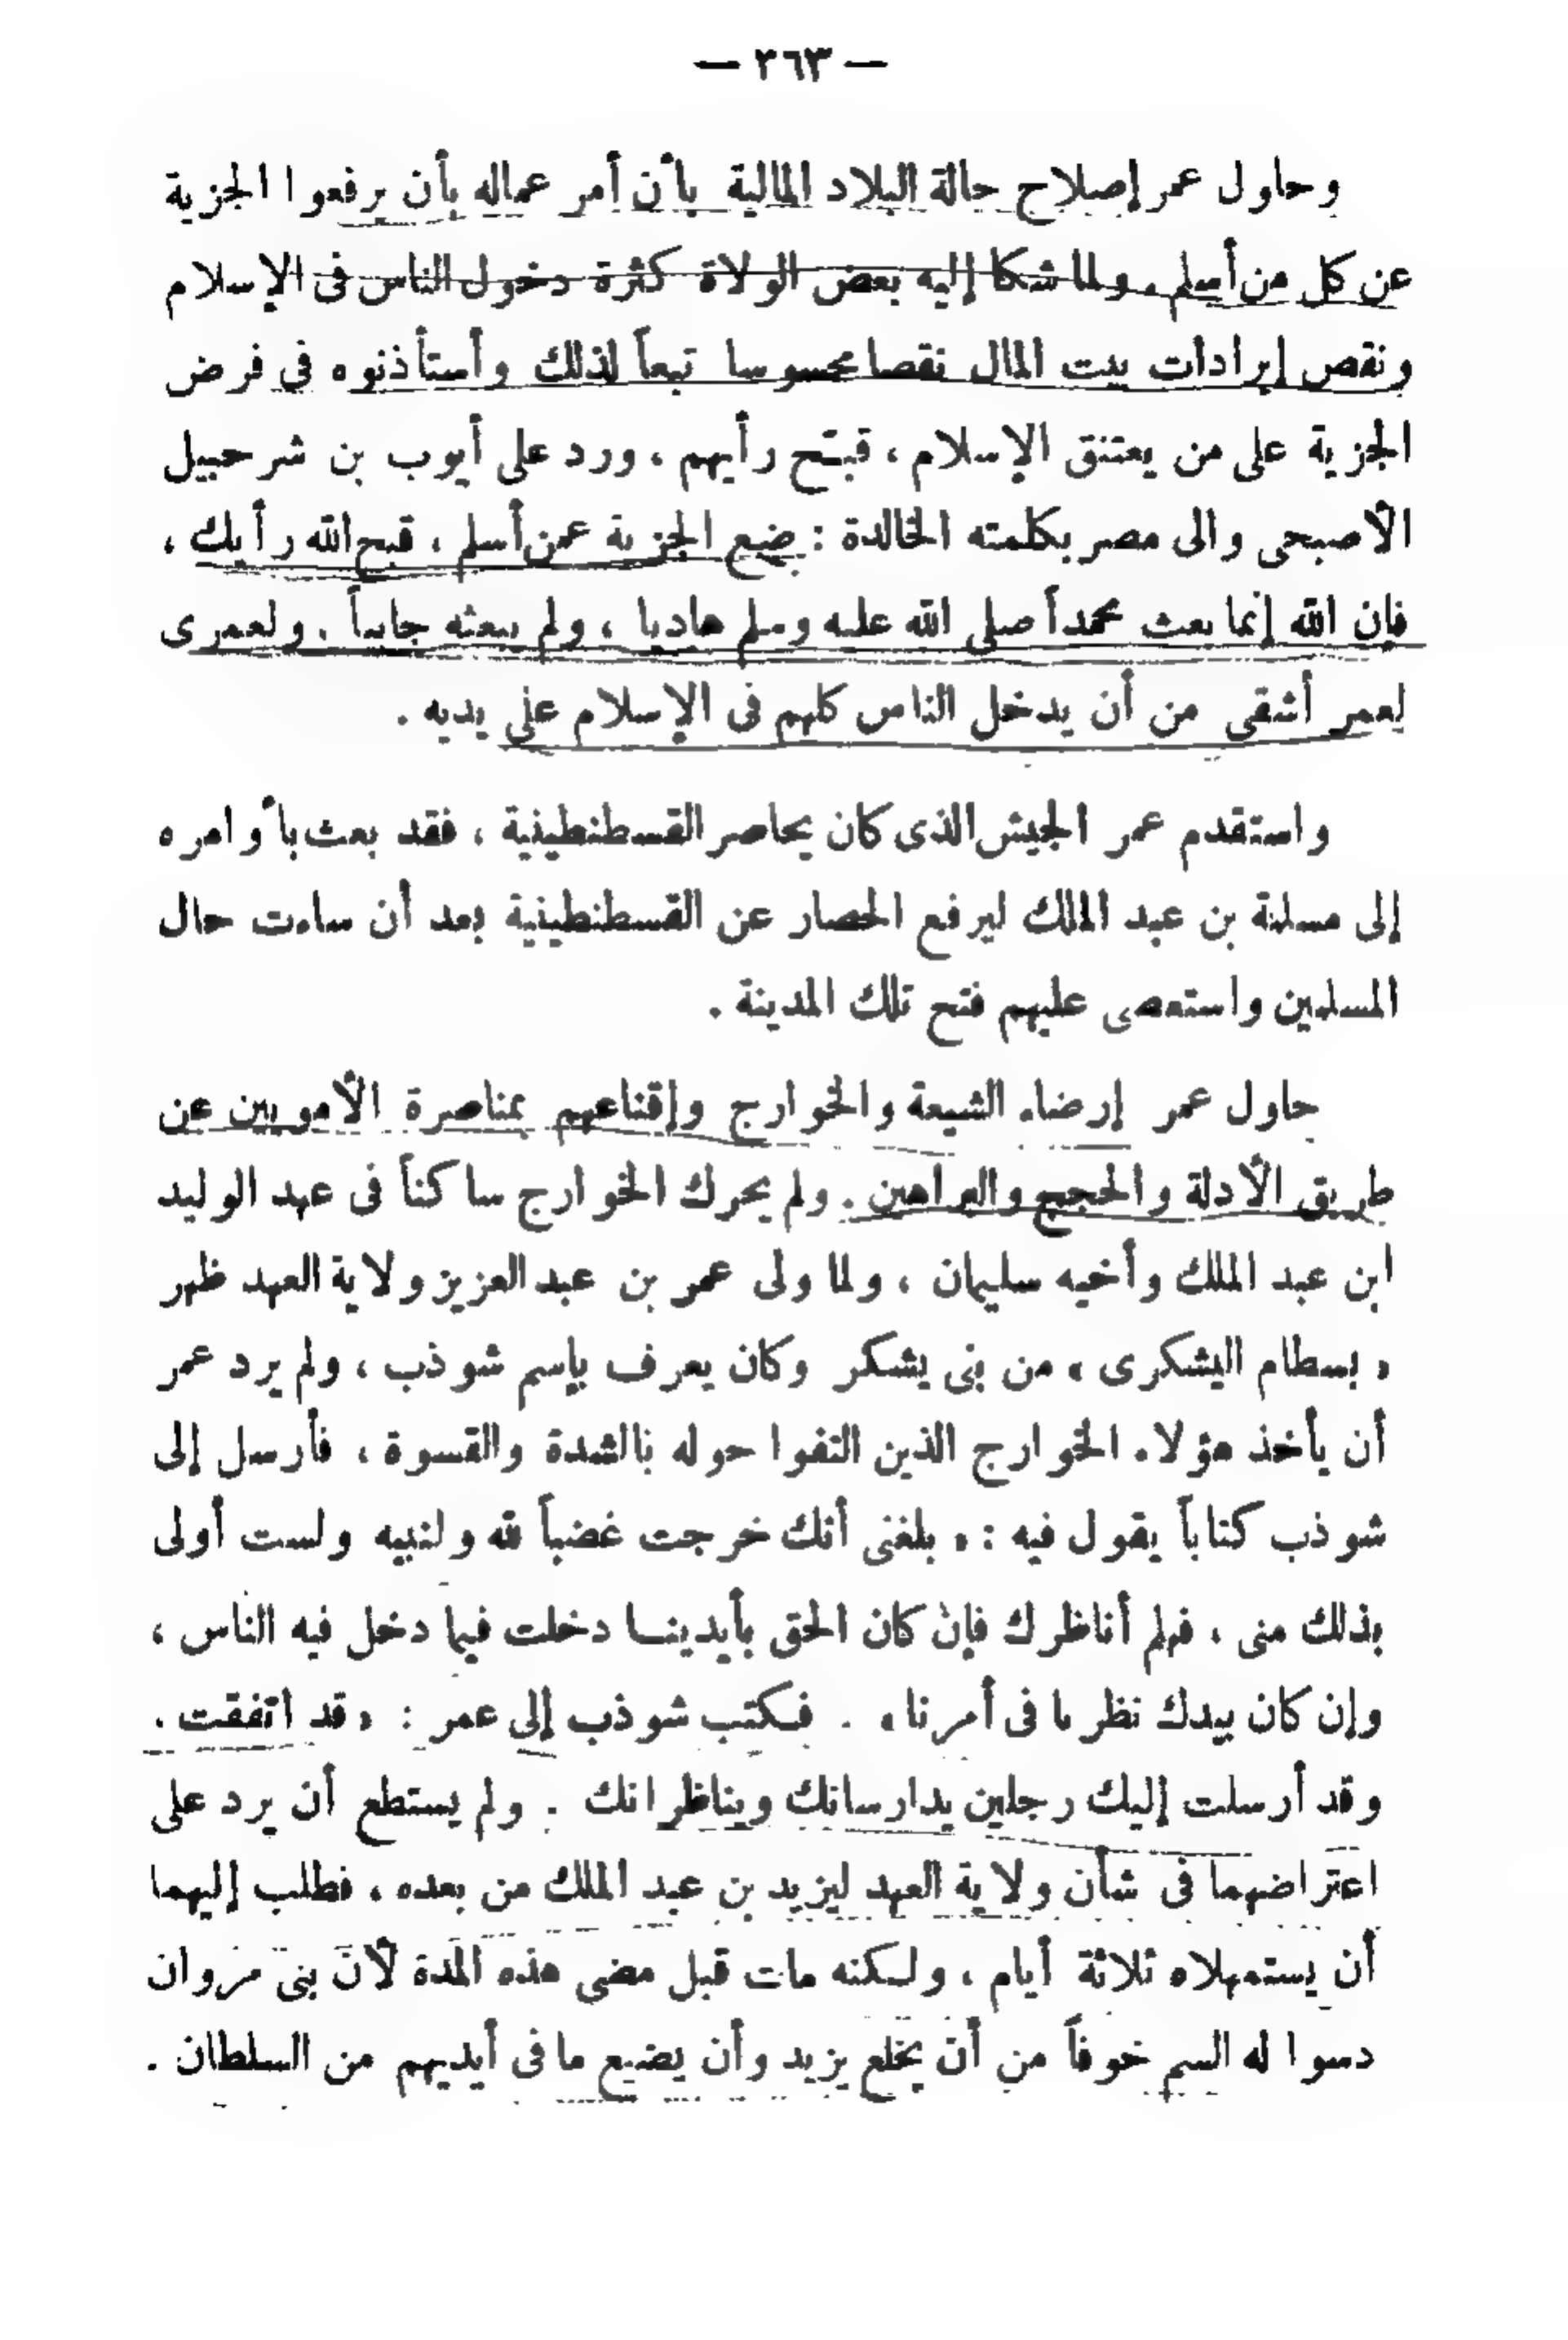 — ٢٦٣ —
وحاول عمر إصلاح حالة البلاد المالية بأن أمر عماله بأن يرفعوا الجزية
عن كل من أسلم . ولما شكا إليه بعض الولاة كثرة دخول الناس فى الإسلام
ونقص إيرادات بيت المال نقصا محسوسا تبعاً لذلك وأستأذنوه فى فرض
الجزية على من يعتنق الإسلام ، قبّح رأيهم ، ورد على أيوب بن شرحبيل
الأصبحى والى مصر بكلمته الخالدة : ضع الجزية عمن أسلم ، قبح الله رأيك ،
فإن الله إنما بعث محمداً صلى الله عليه وسلم هاديا ، ولم يبعثه جابياً . ولعمرى
لعمر أشقى من أن يدخل الناس كلهم فى الإسلام على يديه .
واستقدم عمر الجيش الذى كان يحاصر القسطنطينية ، فقد بعث بأوامره
إلى مسلمة بن عبد الملك ليرفع الحصار عن القسطنطينية بعد أن ساءت حال
المسلمين واستعصى عليهم فتح تلك المدينة .
حاول عمر إرضاء الشيعة والخوارج وإقناعهم بمناصرة الأمويين عن
طريق الأدلة والحجج والبراهين . ولم يحرك الخوارج ساكناً فى عهد الوليد
ابن عبد الملك وأخيه سليمان ، ولما ولى عمر بن عبد العزيز ولاية العهد ظهر
« بسطام اليشكرى » من بنى يشكر وكان يعرف بإسم شوذب ، ولم يرد عمر
أن يأخذ هؤلاء الخوارج الذين التفوا حوله بالشدة والقسوة ، فأرسل إلى
شوذب كتاباً يقول فيه : « بلغنى أنك خرجت غضباً لله ولنبيه ولست أولى
بذلك منى ، فهلم أناظرك فإن كان الحق بأيدينا دخلت فيما دخل فيه الناس ،
وإن كان بيدك نظرما فى أمرنا » . فكتب شوذب إلى عمر : « قد اتفقت .
وقد أرسلت إليك رجلين يدارسانك ويناظرانك . ولم يستطع أن يرد على
اعتراضهما فى شأن ولاية العهد ليزيد بن عبد الملك من بعده ، فطلب إليهما
أن يستمهلاه ثلاثة أيام ، ولكنه مات قبل مضى هذه المدة لأن بنى مروان
دسوا له السم خوفاً من أن يخلع يزيد وأن يضيع ما فى أيديهم من السلطان .